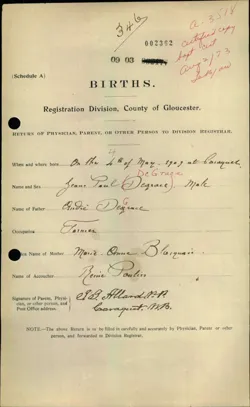 346
002392
A-3518
certified copy
sept cert
Aug 2/73
09 03
(Schedule A)
BIRTHS.
Registration Division, County of Gloucester.
RETURN OF PHYSICIAN, PARENT, OR OTHER PERSON TO DIVISION REGISTRAR.
When and where born On the 4th of May 1909 at Caraquet
DeGrace
Name and Sex Jean Paul Degrace, Male
Name of Father DeGrace
Occupation Farmer
Name of Mother Marie Blanquart
Name of Accoucheur Paulin
Signature of Parent, Physician, or other person, and Post Office address.
Caraquet, N.B.
NOTE.—The above Return is to be filled in carefully and accurately by Physician, Parent or other person, and forwarded to Division Registrar.